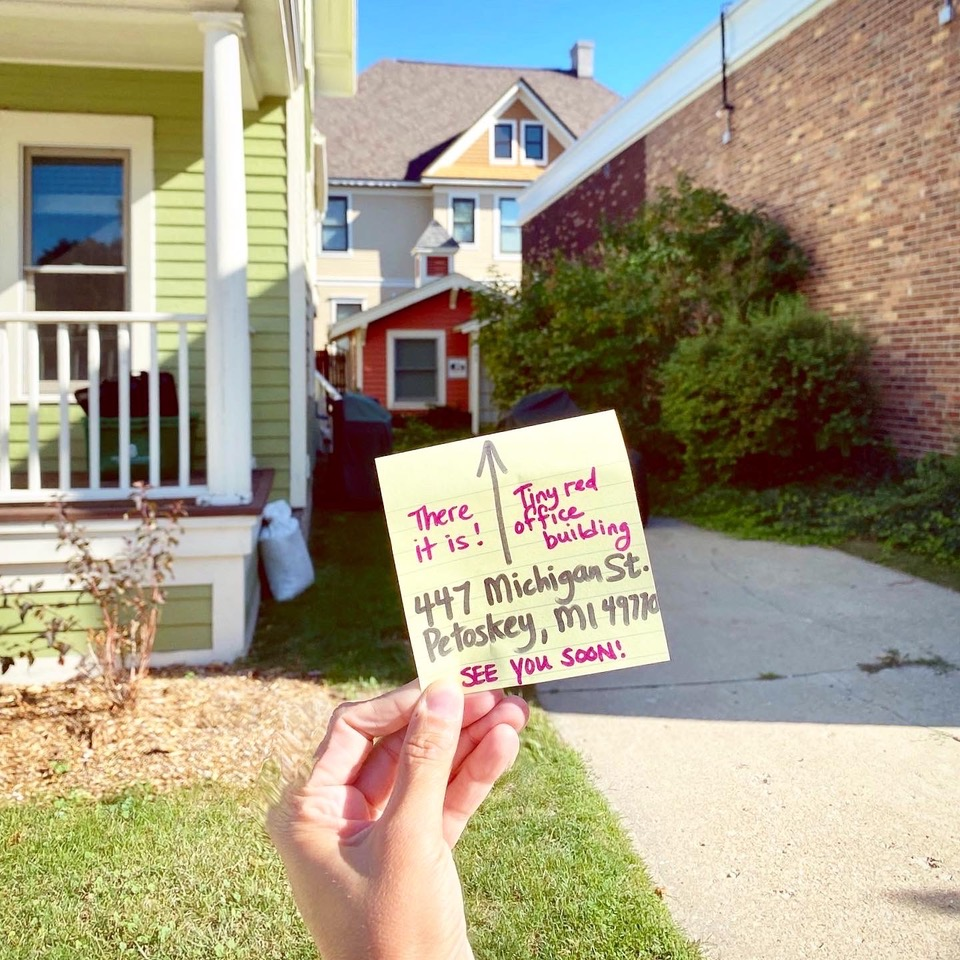 There
it is!
Tiny red
office
building
447 Michigan St.
Petoskey, MI 49770
SEE YOU SOON!